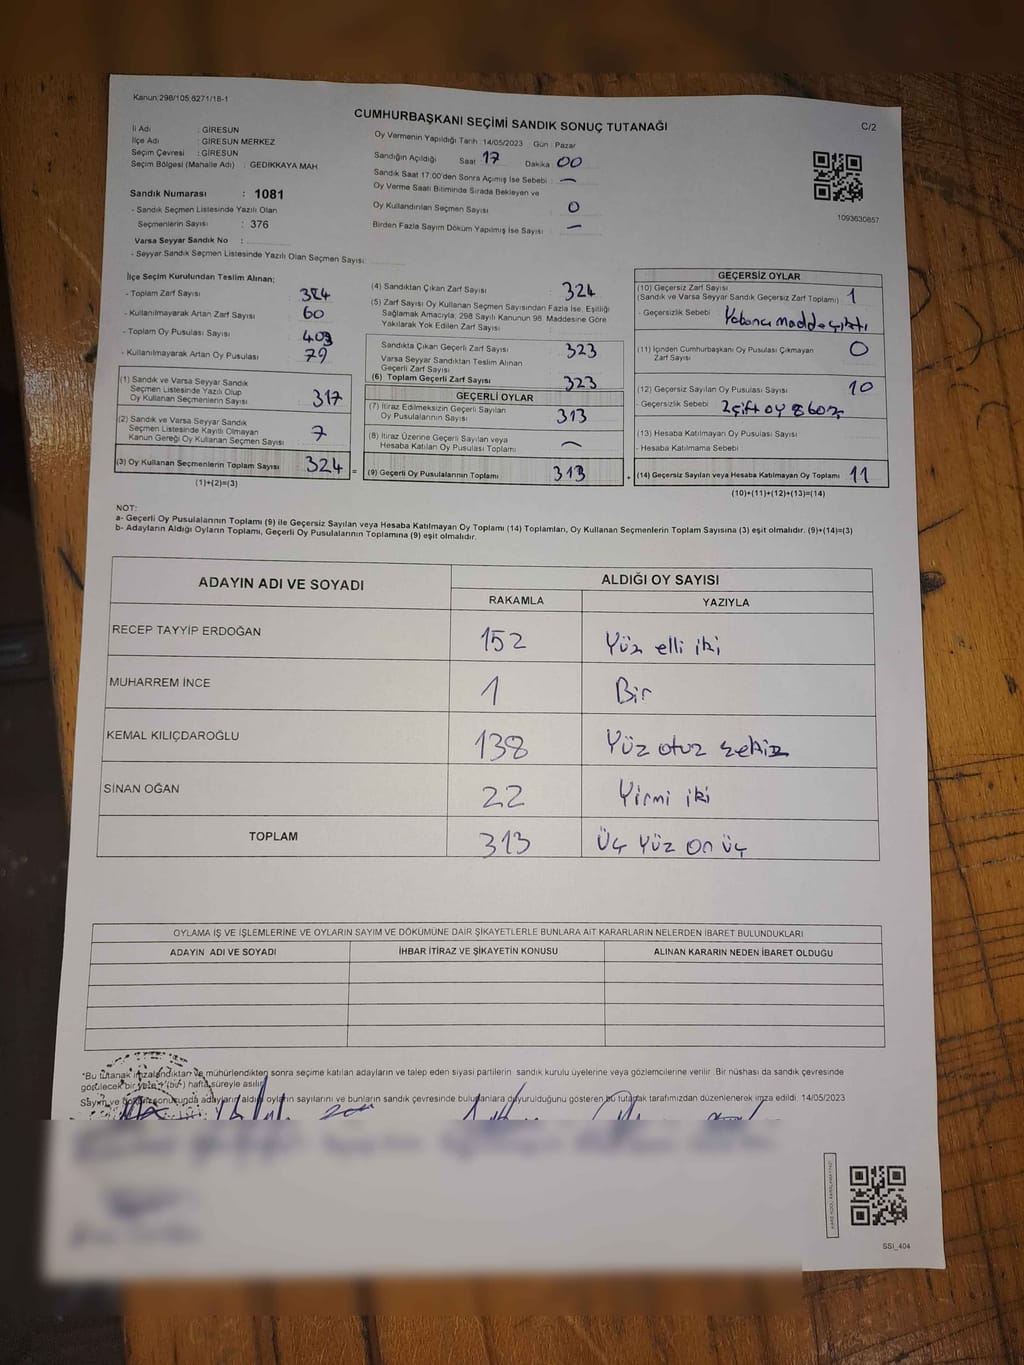 Kanun:298/105;6271/18-1
CUMHURBAŞKANI SEÇİMİ SANDIK SONUÇ TUTANAĞI
C/2
İli Adı : GİRESUN
İlçe Adı : GİRESUN MERKEZ
Seçim Çevresi : GİRESUN
Seçim Bölgesi (Mahalle Adı) : GEDİKKAYA MAH.
Sandık Numarası : 1081
- Sandık Seçmen Listesinde Yazılı Olan
Seçmenlerin Sayısı : 376
Varsa Seyyar Sandık No :
- Seyyar Sandık Seçmen Listesinde Yazılı Olan Seçmen Sayısı
Oy Vermenin Yapıldığı Tarih :14/05/2023 Gün : Pazar
Sandığın Açıldığı Saat 17 Dakika 00
Sandık Saat 17:00'den Sonra Açımış İse Sebebi : —
Oy Verme Saati Bitiminde Sırada Bekleyen ve
Oy Kullandırılan Seçmen Sayısı 0
Birden Fazla Sayım Döküm Yapılmış İse Sayısı —
1093630857
İlçe Seçim Kurulundan Teslim Alınan;
- Toplam Zarf Sayısı
- Kullanılmayarak Artan Zarf Sayısı 60
- Toplam Oy Pusulası Sayısı 403
- Kullanılmayarak Artan Oy Pusulası 79
(1) Sandık ve Varsa Seyyar Sandık
Seçmen Listesinde Yazılı Olup
Oy Kullanan Seçmenlerin Sayısı 317
(2) Sandık ve Varsa Seyyar Sandık
Seçmen Listesinde Kayıtlı Olmayan
Kanun Gereği Oy Kullanan Seçmen Sayısı 7
(3) Oy Kullanan Seçmenlerin Toplam Sayısı 324 =
(1)+(2)=(3)
(4) Sandıktan Çıkan Zarf Sayısı 324
(5) Zarf Sayısı Oy Kullanan Seçmen Sayısından Fazla İse, Eşitliği
Sağlamak Amacıyla; 298 Sayılı Kanunun 98. Maddesine Göre
Yakılarak Yok Edilen Zarf Sayısı
Sandıkta Çıkan Geçerli Zarf Sayısı 323
Varsa Seyyar Sandıktan Teslim Alınan
Geçerli Zarf Sayısı
(6) Toplam Geçerli Zarf Sayısı 323
GEÇERLİ OYLAR
(7) İtiraz Edilmeksizin Geçerli Sayılan
Oy Pusulalarının Sayısı 313
(8) İtiraz Üzerine Geçerli Sayılan veya
Hesaba Katılan Oy Pusulası Toplamı —
(9) Geçerli Oy Pusulalarının Toplamı 313 +
GEÇERSİZ OYLAR
(10) Geçersiz Zarf Sayısı
(Sandık ve Varsa Seyyar Sandık Geçersiz Zarf Toplamı) 1
- Geçersizlik Sebebi Yabancı madde çıktı
(11) İçinden Cumhurbaşkanı Oy Pusulası Çıkmayan
Zarf Sayısı 0
(12) Geçersiz Sayılan Oy Pusulası Sayısı 10
- Geçersizlik Sebebi 2 çift oy 8
(13) Hesaba Katılmayan Oy Pusulası Sayısı
- Hesaba Katılmama Sebebi
(14) Geçersiz Sayılan veya Hesaba Katılmayan Oy Toplamı 11
(10)+(11)+(12)+(13)=(14)
NOT:
a- Geçerli Oy Pusulalarının Toplamı (9) ile Geçersiz Sayılan veya Hesaba Katılmayan Oy Toplamı (14) Toplamları, Oy Kullanan Seçmenlerin Toplam Sayısına (3) eşit olmalıdır. (9)+(14)=(3)
b- Adayların Aldığı Oyların Toplamı, Geçerli Oy Pusulalarının Toplamına (9) eşit olmalıdır.
ADAYIN ADI VE SOYADI
ALDIĞI OY SAYISI
RAKAMLA YAZIYLA
RECEP TAYYİP ERDOĞAN 152 Yüz elli iki
MUHARREM İNCE 1 Bir
KEMAL KILIÇDAROĞLU 138 Yüz otuz sekiz
SİNAN OĞAN 22 Yirmi iki
TOPLAM 313 Üç yüz on üç
OYLAMA İŞ VE İŞLEMLERİNE VE OYLARIN SAYIM VE DÖKÜMÜNE DAİR ŞİKAYETLERLE BUNLARA AİT KARARLARIN NELERDEN İBARET BULUNDUKLARI
ADAYIN ADI VE SOYADI İHBAR İTİRAZ VE ŞİKAYETİN KONUSU ALINAN KARARIN NEDEN İBARET OLDUĞU
*Bu tutanak imzalandıktan ve mühürlendikten sonra seçime katılan adayların ve talep eden siyasi partilerin sandık kurulu üyelerine veya gözlemcilerine verilir. Bir nüshası da sandık çevresinde
görülecek bir yere 1 (bir) hafta süreyle asılır
Sayım ve döküm sonucunda adayların aldığı oyların sayılarını ve bunların sandık çevresinde bulunanlara duyurulduğunu gösteren bu tutanak tarafımızdan düzenlenerek imza edildi. 14/05/2023
SSI_404